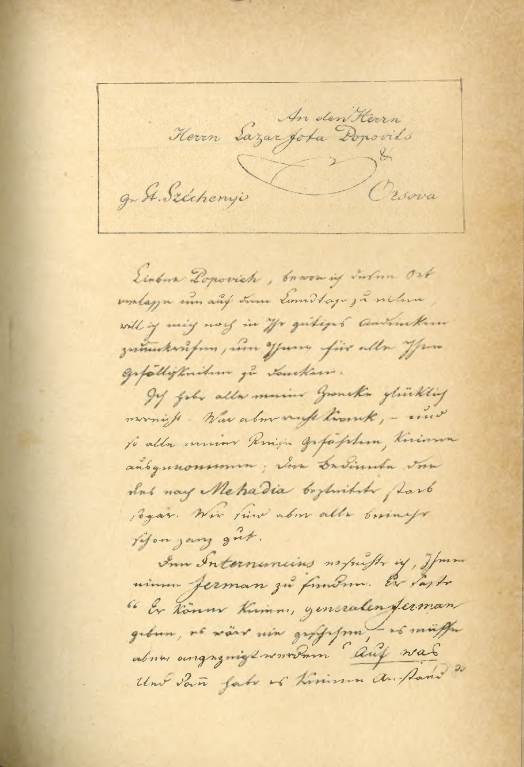 An den Herrn
Herrn Lazar Fota Popovits
&
gr St. Széchenyi Orsova
Lieber Popovich, bevor ich diesen Ort
verlasse um auf dem Landtage zu
will ich mich noch in Ihr gütiges Andenken
zurückrufen, um Ihnen für alle Ihre
Gefälligkeiten zu dancken.
Ich habe alle meine Zwecke glücklich
erreicht. War aber recht Kranck, – und
so alle meine Reise Gefährten, Keinen
ausgenommen; Der Bediente der
uns nach Mehadia begleitete starb
sogar. Wir sind aber alle
schon ganz gut.
Den Internuncius ersuchte ich, Ihnen
einen Ferman zu senden. Er sagte
"Er könne keinen generalen Ferman
geben, es wär nie geschehen, – es müsse
aber angezeigt werden "Auf was
Und dann habe es keinen Anstand"